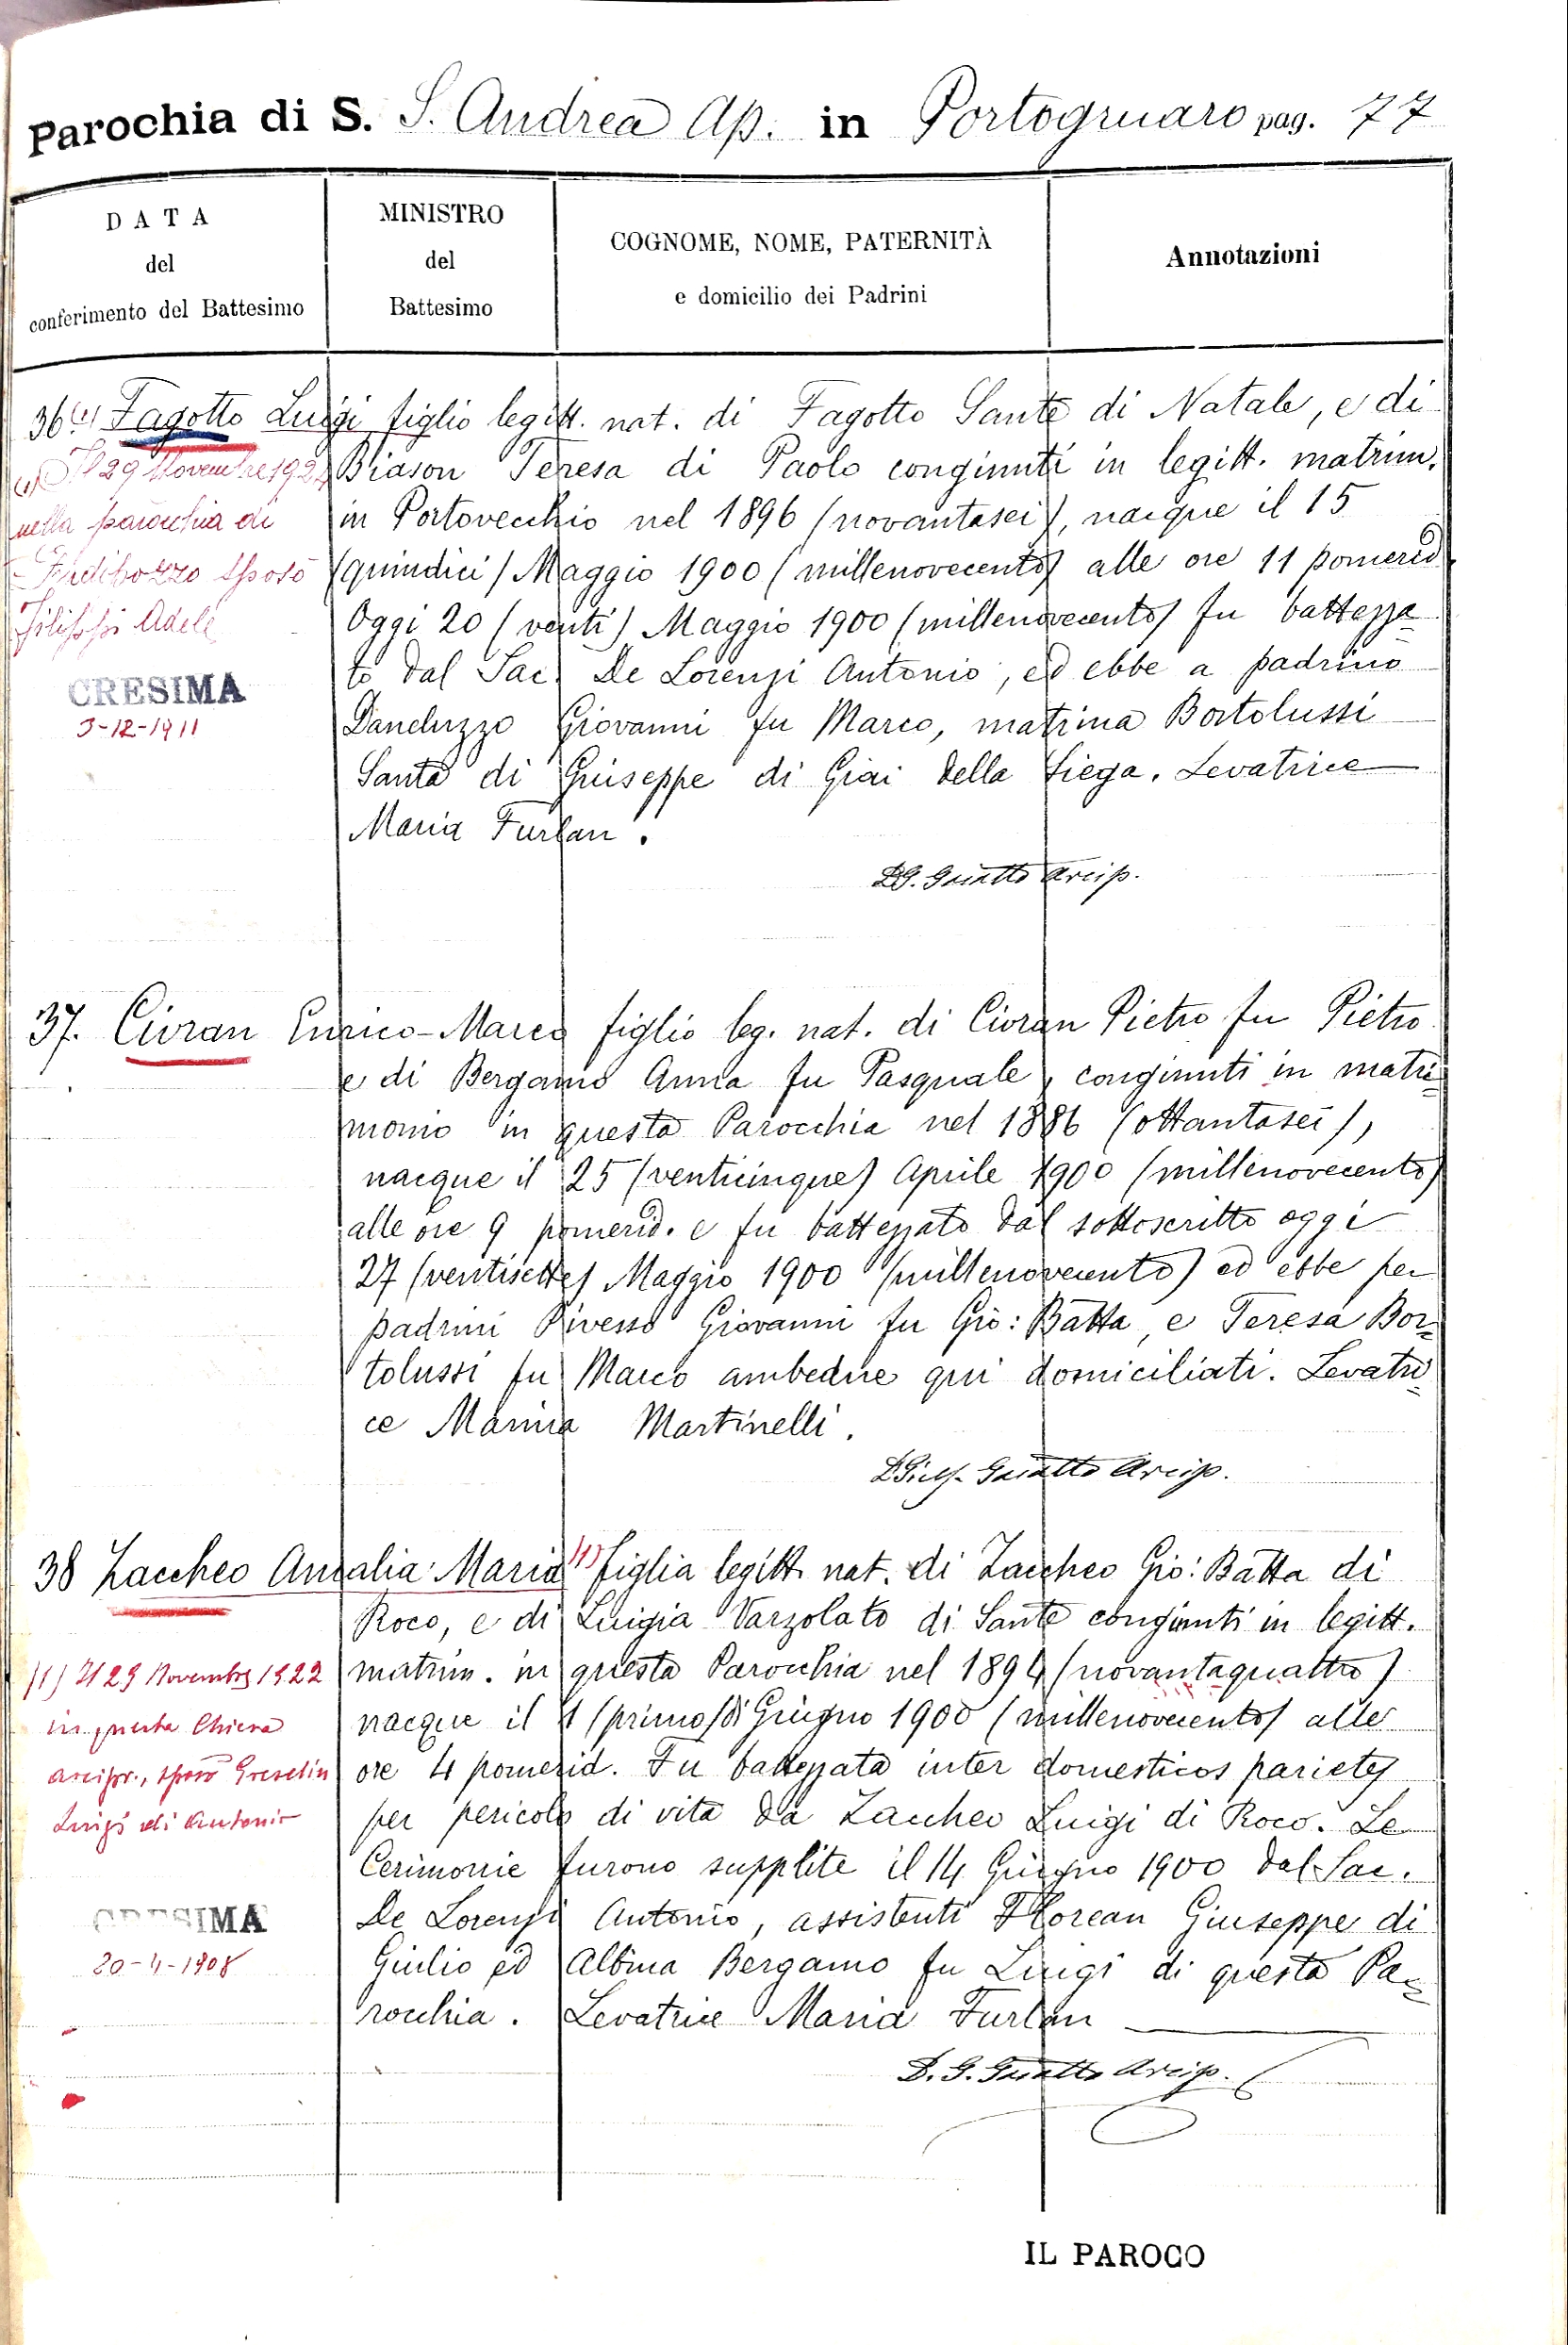 Parochia di S. S. Andrea Ap. in Portogruaro pag. 77
DATA
del
conferimento del Battesimo
MINISTRO
del
Battesimo
COGNOME, NOME, PATERNITÀ
e domicilio dei Padrini
Annotazioni
36 (1) Fagotto Luigi figlio legitt. nat. di Fagotto Sante di Natale, e di
Biason Teresa di Paolo congiunti in legitt. matrim.
in Portovecchio nel 1896 (novantasei), nacque il 15
(quindici) Maggio 1900 (millenovecento) alle ore 11 pomerid
Oggi 20 (venti) Maggio 1900 (millenovecento) fu battezza
to dal Sac. De Lorenzi Antonio, ed ebbe a padrino
Daneluzzo Giovanni fu Marco, matrina Bortolussi
Santa di Giuseppe di Giai della Siega. Levatrice
Maria Furlan.
(1) Il 29 Novembre 192
nella parocchia di
sposò
Filippi Adele
CRESIMA
3-12-1911
D G. Guatto Arcip.
37. Civran Enrico-Marco figlio leg. nat. di Civran Pietro fu Pietro
e di Bergamo Anna fu Pasquale, congiunti in matri
monio in questa Parocchia nel 1886 (ottantasei),
nacque il 25 (venticinque) Aprile 1900 (millenovecento)
alle ore 9 pomerid. e fu battezzato dal sottoscritto oggi
27 (ventisette) Maggio 1900 (millenovecento) ed ebbe per
padrini Giovanni fu Gio: Batta, e Teresa Bor
tolussi fu Marco ambedue qui domiciliati. Levatri
ce Marina Martinelli.
Guatto Arcip.
38 Zaccheo Amalia Maria (1) figlia legitt. nat. di Zaccheo Gio: Batta di
Roco, e di Luigia Varzolato di Sante congiunti in legitt.
matrim. in questa Parocchia nel 1894 (novantaquattro)
nacque il 1 (primo) di Giugno 1900 (millenovecento) alle
ore 4 pomerid. Fu battezzata inter domesticos parietes
per pericolo di vita da Zaccheo Luigi di Roco. Le
Cerimonie furono supplite il 14 Giugno 1900 dal Sac.
De Lorenzi Antonio, assistenti Florean Giuseppe di
Giulio ed Albina Bergamo fu Luigi di questa Pa
rocchia. Levatrice Maria Furlan
(1) Il 29 Novembre 1922
in questa Chiesa
arcipr., sposò Greselin
Luigi di Antonio
CRESIMA
20-4-1908
D. G. Guatto Arcip.
IL PAROCO